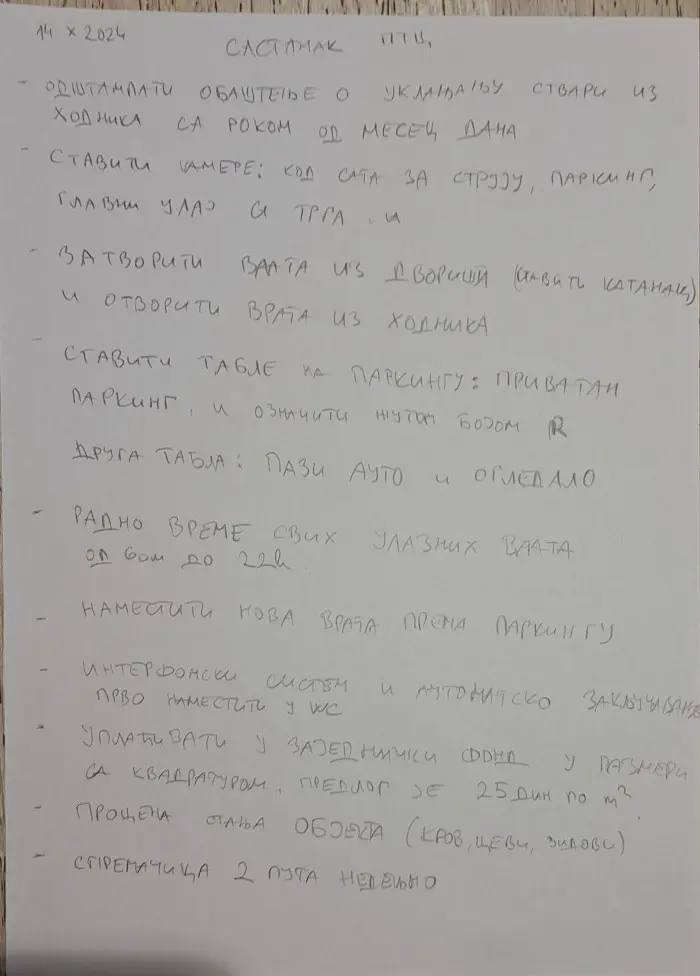 14 X 2024
САСТАНАК ПТЦ
- ОДШТАМПАТИ ОБАШТЕЊЕ О УКЛАЊАЊУ СТВАРИ ИЗ
ХОДНИКА СА РОКОМ ОД МЕСЕЦ ДАНА
- СТАВИТИ КАМЕРЕ: КОД САТА ЗА СТРУЈУ, ПАРКИНГ,
ГЛАВНИ УЛАЗ СА ТРГА. И
- ЗАТВОРИТИ ВРАТА ИЗ ДВОРИШТА (СТАВИТИ КАТАНАЦ)
И ОТВОРИТИ ВРАТА ИЗ ХОДНИКА
- СТАВИТИ ТАБЛЕ НА ПАРКИНГУ: ПРИВАТАН
ПАРКИНГ, И ОЗНАЧИТИ ЖУТОМ БОЈОМ R
ДРУГА ТАБЛА: ПАЗИ АУТО И ОГЛЕДАЛО
- РАДНО ВРЕМЕ СВИХ УЛАЗНИХ ВРАТА
ОД 6am ДО 22h
- НАМЕСТИТИ НОВА ВРАТА ПРЕМА ПАРКИНГУ
- ИНТЕРФОНСКИ СИСТЕМ И АУТОМАТСКО ЗАКЉУЧАВАЊЕ
ПРВО НАМЕСТИТИ У WC
- УПЛАЋИВАТИ У ЗАЈЕДНИЧКИ ФОНД У РАЗМЕРИ
СА КВАДРАТУРОМ. ПРЕДЛОГ ЈЕ 25 ДИН ПО m².
- ПРОЦЕНА СТАЊА ОБЈЕКТА (КРОВ, ЦЕВИ, ЗИДОВИ)
- СПРЕМАЧИЦА 2 ПУТА НЕДЕЉНО